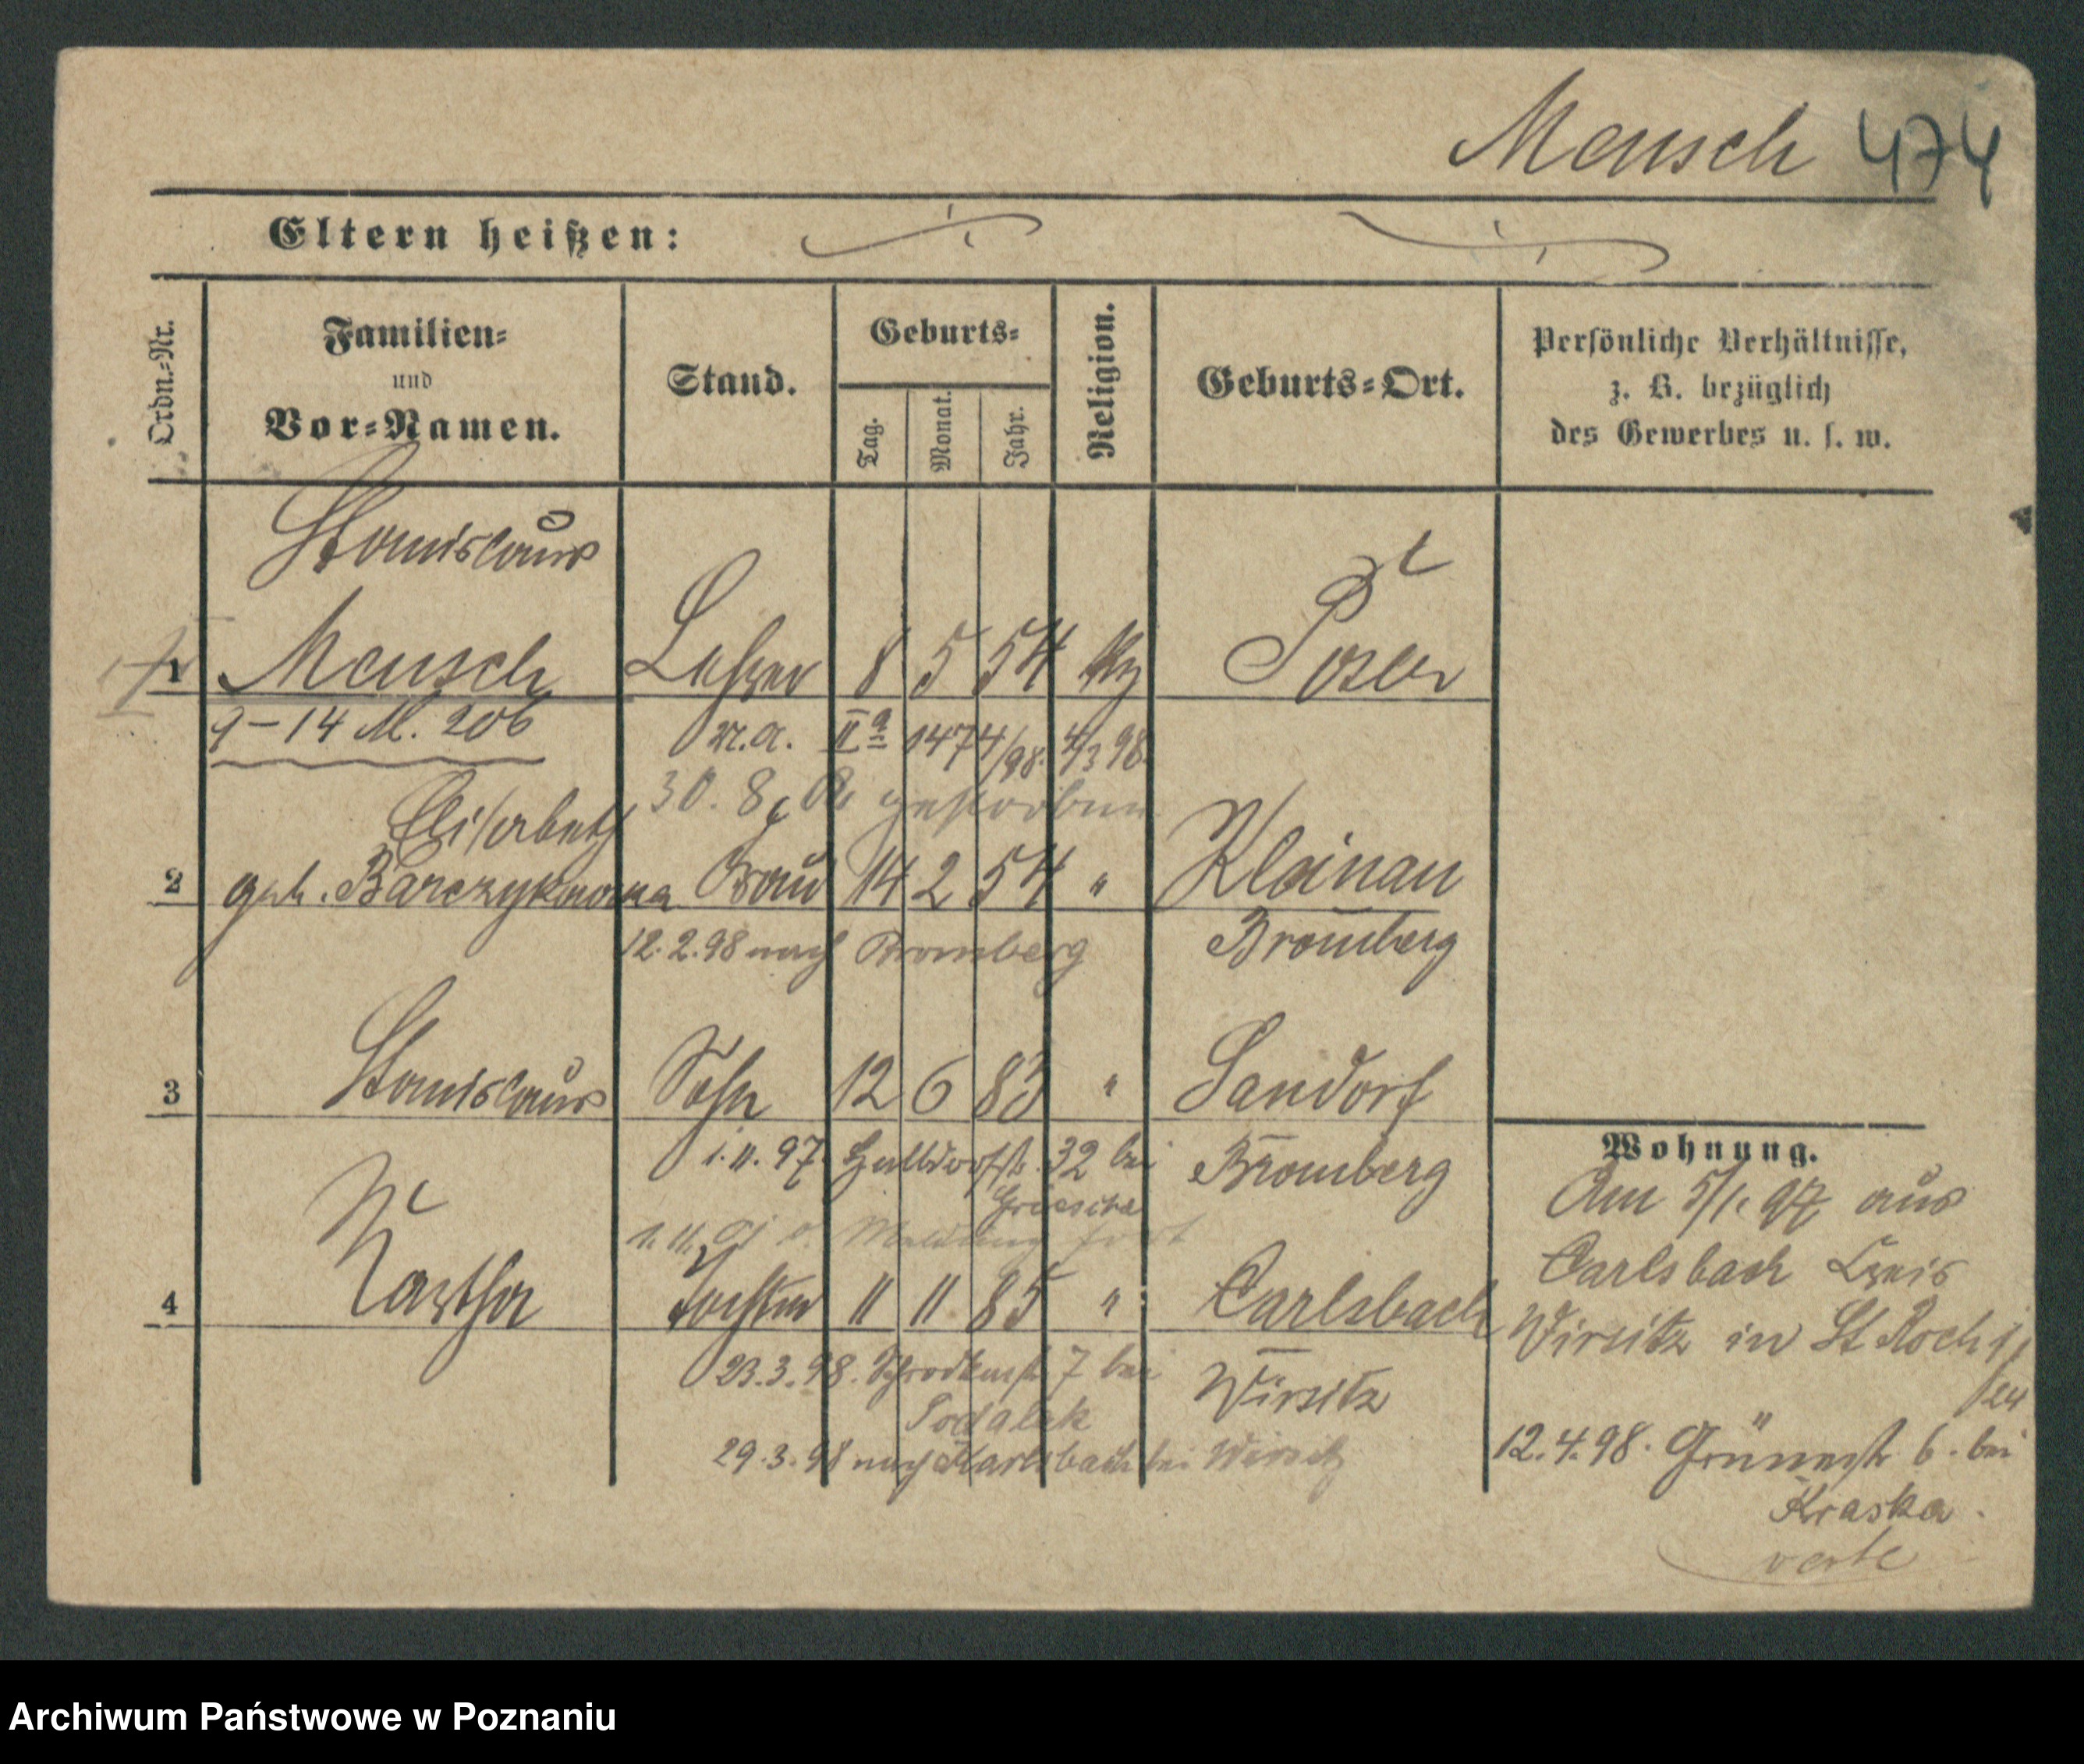 Mensch 474
Eltern heißen:
Ordn.-Nr.
Familien-
und
Vor-Namen.
Stand.
Geburts-
Tag.
Monat.
Jahr.
Religion.
Geburts-Ort.
Persönliche Verhältnisse,
z. B. bezüglich
des Gewerbes u. s. w.
Stanislaus
1 Mensch Lehrer 8 5 54 Posen
9-14 M. 206
II a 1474/98. 4/3 98
30. 8. gestorben
Elisabeth
2 geb. Barczykowska Frau 14 2 54 " Kleinau
12.2.98 nach Bromberg Bromberg
3 Stanislaus Sohn 12 6 83 " Sandorf
1.11.97. Halbdorfstr. 32 bei Bromberg
1.11. Meldung fort
4 Martha Tochter 11 11 85 " Carlsbach
23.3.98. 7 bei Wirsitz
29.3.98 nach Karlsbach bei Wirsitz
Wohnung.
Am 5/1. 97 aus
Carlsbach Kreis
Wirsitz in St Roch
12.4.98. Grünestr 6. bei
Kraska.
verte
Archiwum Państwowe w Poznaniu